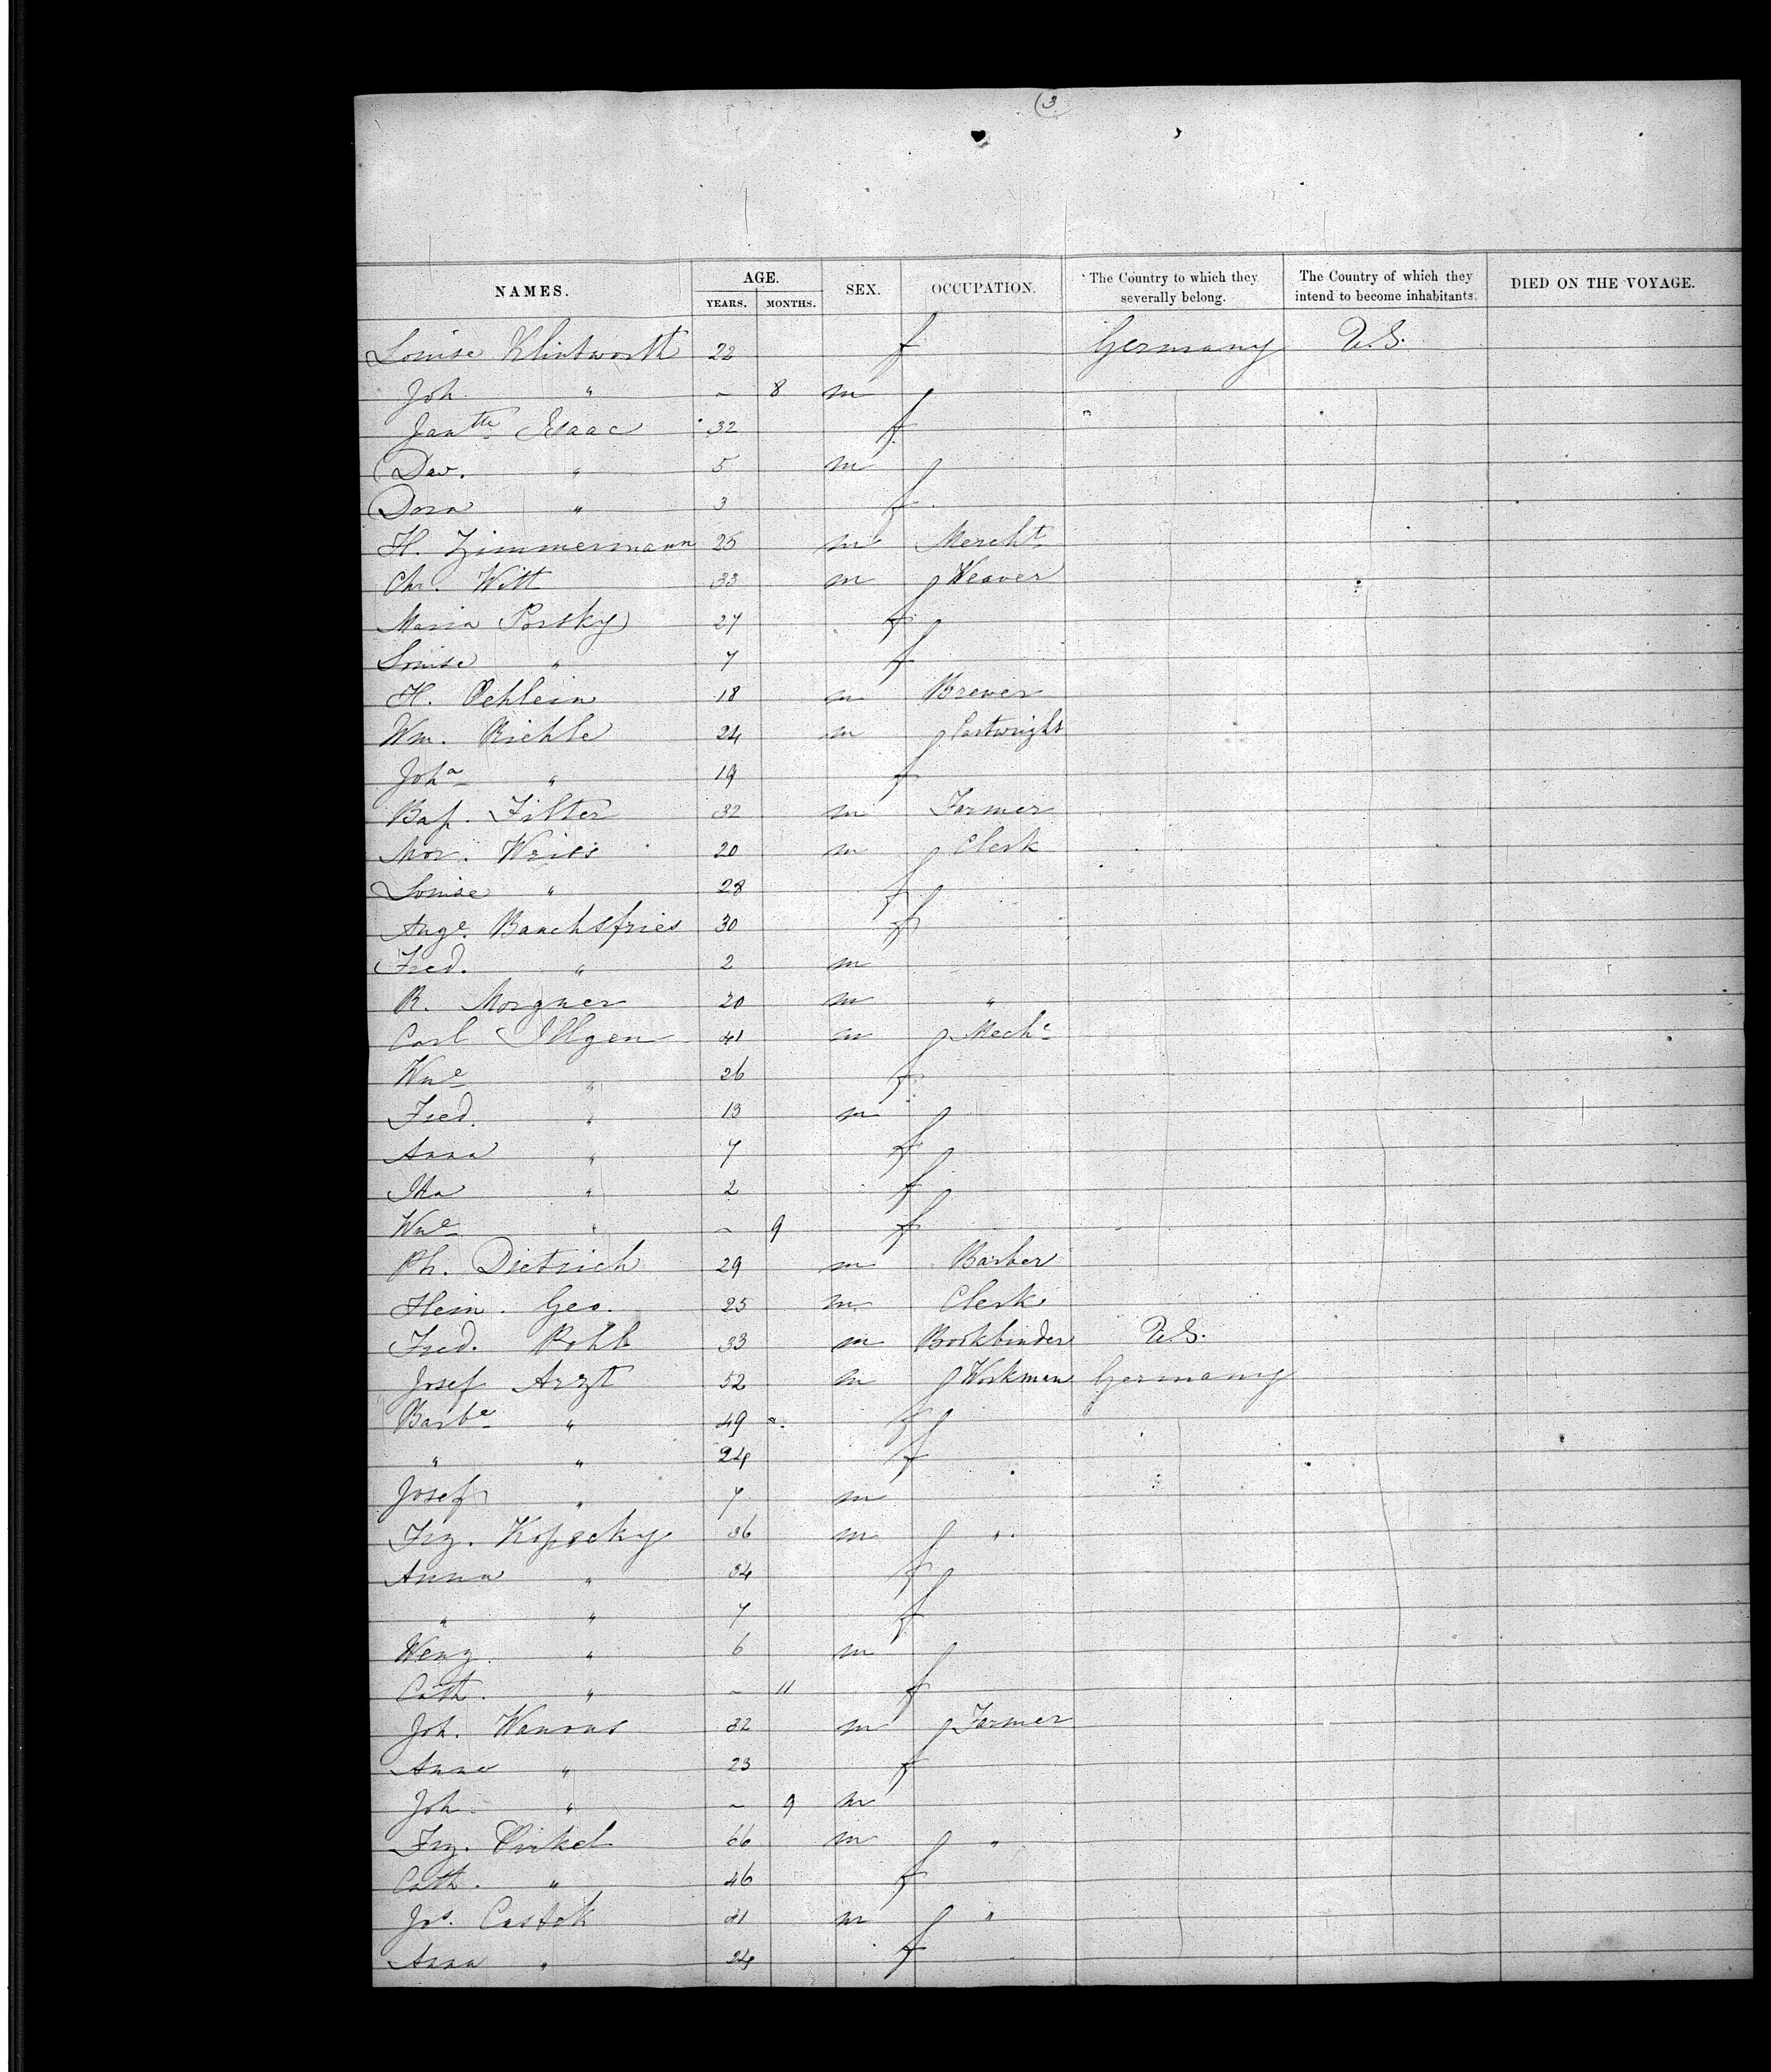 (3
NAMES. AGE. YEARS. MONTHS. SEX. OCCUPATION. The Country to which they severally belong. The Country of which they intend to become inhabitants. DIED ON THE VOYAGE.
Louise Klintworth 22 f Germany U.S.
Joh. " ~ 8 m
Jantte Isaac 32 f "
Dav. " 5 m
Dora " 3 f
H. Zimmermann 25 m Mercht
Chr. Witt 33 m Weaver
Maria Porsky 27 f
Louise " 7 f
H. Oehlein 18 m Brewer
Wm. Riehle 24 m Cartwright
Joha " 19 f
Bap. Filter 32 m Farmer
Mor. Weiss 20 m Clerk
Louise " 28 f
Auge. Bauchsfries 30 f
Fred. " 2 m
R. Morgner 20 m "
Carl Illgen 41 m Meche
Wne " 26 f
Fred. " 13 m
Anna " 7 f
Ida " 2 f
Wne " ~ 9 f
Ph. Dietrich 29 m Barber
Hein. Geo. 25 m Clerk
Fred. Rohb 33 m Bookbinder U.S.
Josef Arzt 52 m Workman Germany
Barbe " 49 f
" " 24 f
Josef " 7 m
Frz. Kopecky 36 m "
Anna " 34 f
" " 7 f
Wenz. " 6 m
Cath. " ~ 11 f
Joh. Wanous 32 m Farmer
Anna " 23 f
Joh. " ~ 9 m
Frz. Pirkel 66 m "
Cath. " 46 f
Jos. Castok 41 m "
Anna " 24 f